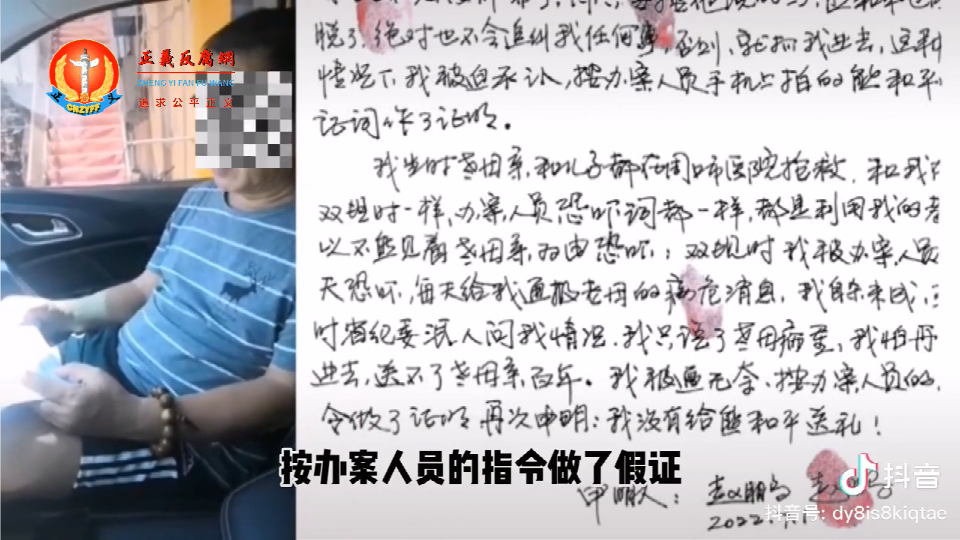 正義反腐網
ZHENG YI FAN FU WANG
追求公平正义
CNZYFF
脱了,绝对也不会追纠我任何事,否则,就抓我进去,这种
情况下,我被迫承认,按办案人员手机上拍的熊和平
证词作了证明。
我当时老母亲和儿子都在周口市医院抢救,和我
双规时一样,办案人员恐吓词都一样,都是利用我的老
以不能见着老母亲为由恐吓;双规时我被办案人员
天恐吓,每天给我通报老母的病危消息,我自杀未成,
时省纪委派人问我情况,我只说了老母病重,我怕再
进去,送不了老母亲百年。我被逼无奈,按办案人员的
令做了证明,再次申明:我没有给熊和平送礼!
按办案人员的指令做了假证
申明人:赵鹏
2022.
抖音
抖音号: dy8is8kiqtae